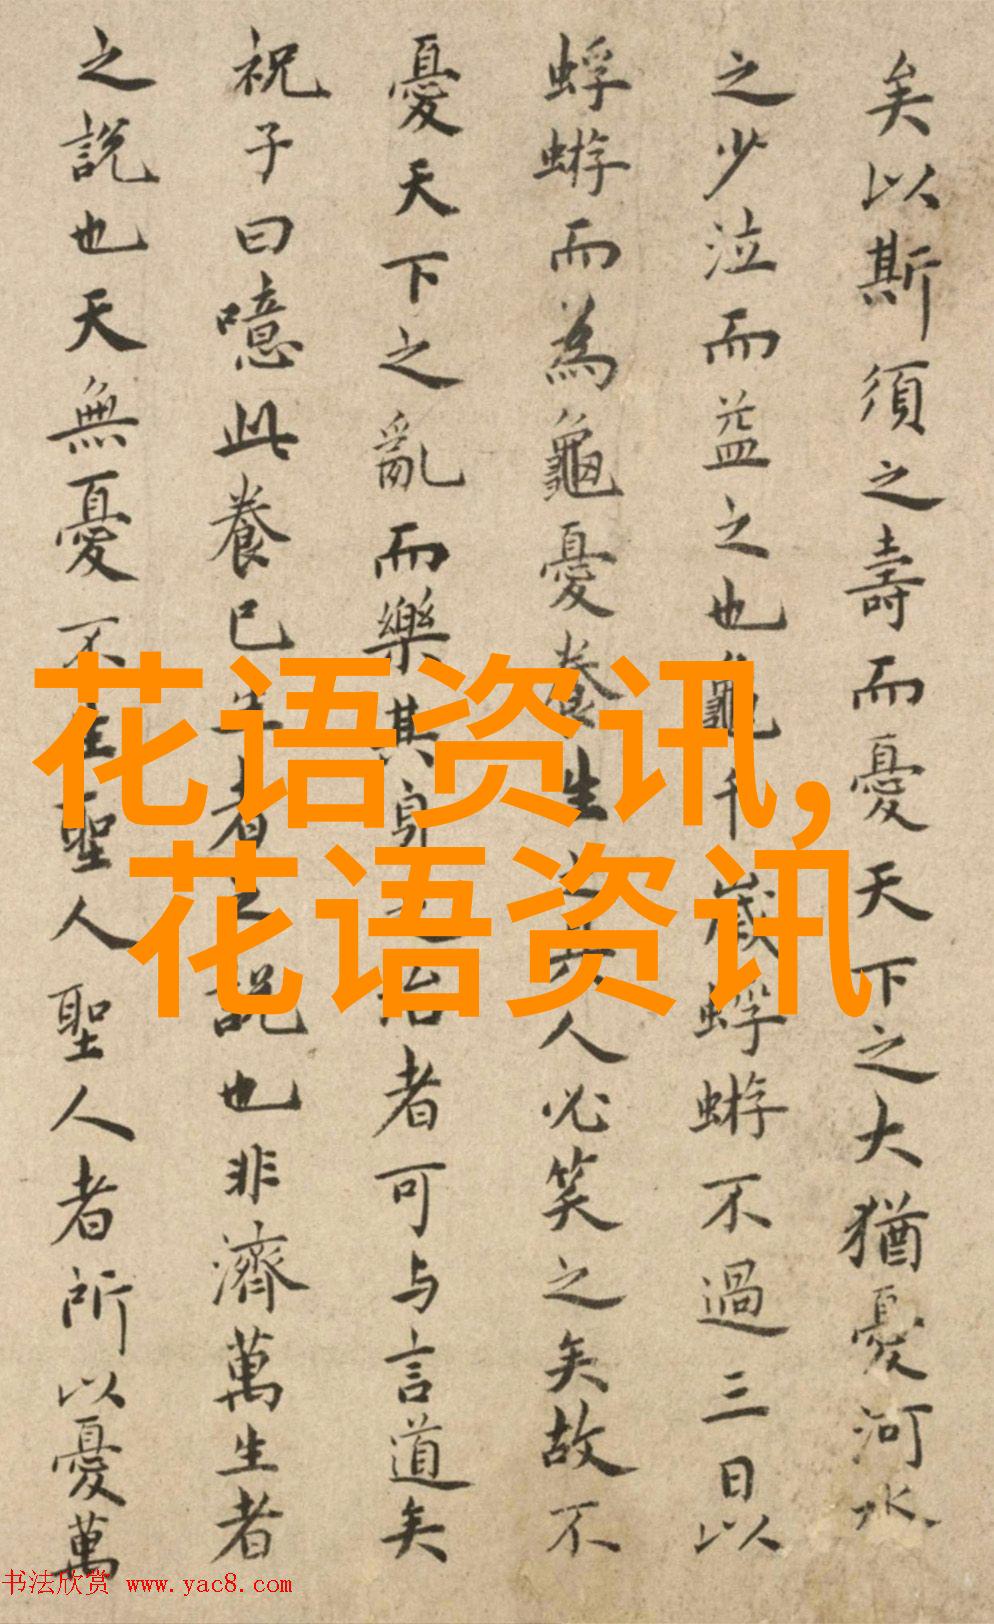 矣以斯須之壽而憂天下之大猶憂河水
之少泣而益之也龜千歲蜉蝣不過三日以
蜉蝣而為龜憂養生之具人必笑之矣故不
憂天下之亂而樂其身之治者可与言道矣
祝子曰噫此養已生者之說也非濟萬生者
之說也天無憂不生聖人聖人者所以憂萬
花语资讯,
花语资讯
书法欣赏 www.yac8.com